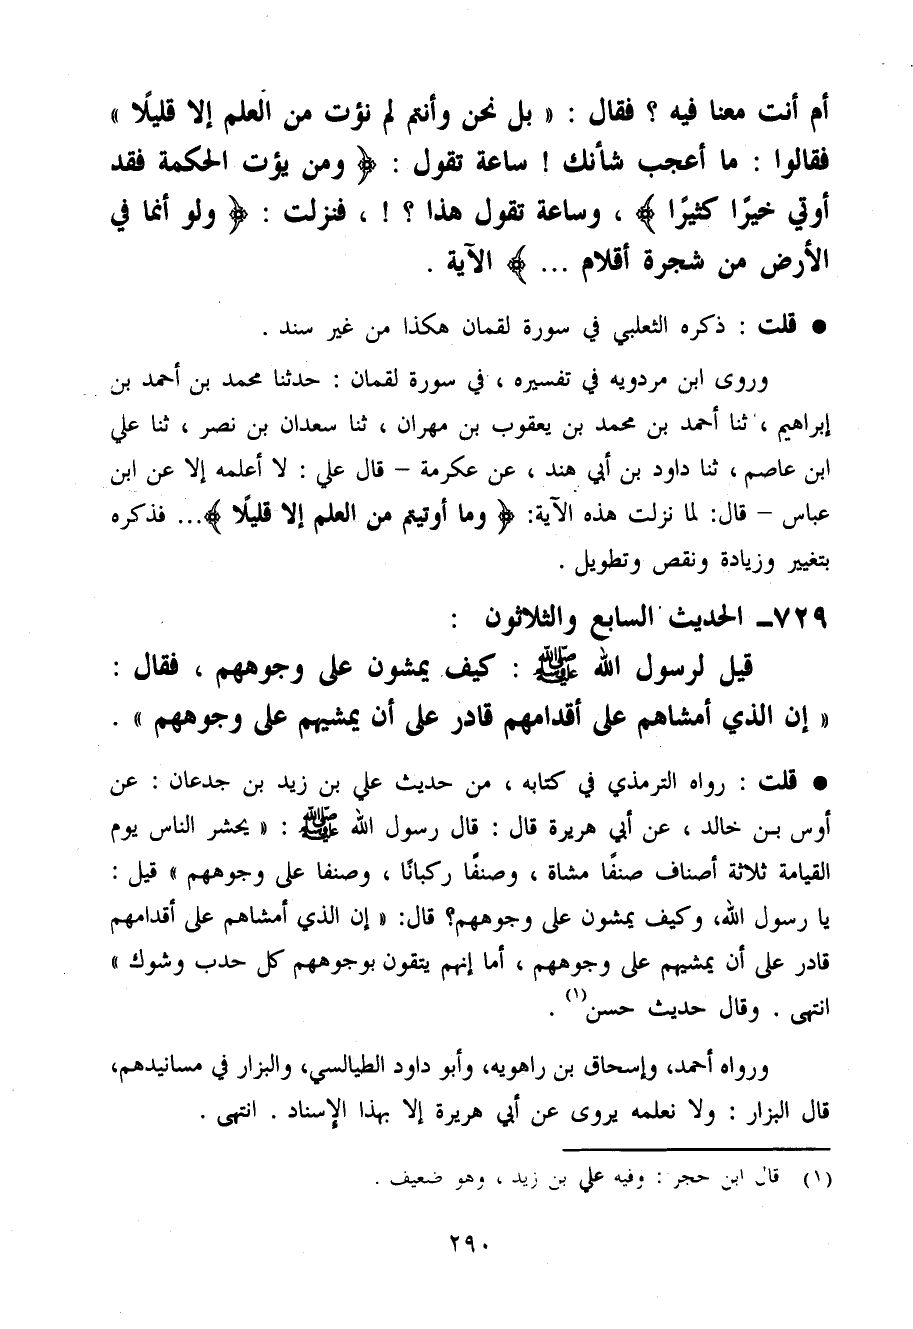 أم أنت معنا فيه ؟ فقال : « بل نحن وأنتم لم نؤت من العلم إلا قليلًا »
فقالوا : ما أعجب شأنك ! ساعة تقول : ﴿ ومن يؤت الحكمة فقد
أوتي خيرًا كثيرًا ﴾ ، وساعة تقول هذا ؟ ! ، فنزلت : ﴿ ولو أنما في
الأرض من شجرة أقلام ... ﴾ الآية .
● قلت : ذكره الثعلبي في سورة لقمان هكذا من غير سند .
وروى ابن مردويه في تفسيره ، في سورة لقمان : حدثنا محمد بن أحمد بن
إبراهيم ، ثنا أحمد بن محمد بن يعقوب بن مهران ، ثنا سعدان بن نصر ، ثنا علي
ابن عاصم ، ثنا داود بن أبي هند ، عن عكرمة – قال علي : لا أعلمه إلا عن ابن
عباس – قال: لما نزلت هذه الآية: ﴿ وما أوتيتم من العلم إلا قليلًا ﴾... فذكره
بتغيير وزيادة ونقص وتطويل .
٧٢٩ـ الحديث السابع والثلاثون :
قيل لرسول الله ﷺ : كيف يمشون على وجوههم ، فقال :
« إن الذي أمشاهم على أقدامهم قادر على أن يمشيهم على وجوههم » .
● قلت : رواه الترمذي في كتابه ، من حديث علي بن زيد بن جدعان : عن
أوس بـن خالد ، عن أبي هريرة قال : قال رسول الله ﷺ : « يحشر الناس يوم
القيامة ثلاثة أصناف صنفًا مشاة ، وصنفًا ركبانًا ، وصنفا على وجوههم » قيل :
يا رسول الله، وكيف يمشون على وجوههم؟ قال: « إن الذي أمشاهم على أقدامهم
قادر على أن يمشيهم على وجوههم ، أما إنهم يتقون بوجوههم كل حدب وشوك »
انتهى . وقال حديث حسن(١) .
ورواه أحمد، وإسحاق بن راهويه، وأبو داود الطيالسي، والبزار في مسانيدهم،
قال البزار : ولا نعلمه يروى عن أبي هريرة إلا بهذا الإسناد . انتهى .
(١) قال ابن حجر : وفيه علي بن زيد ، وهو ضعيف .
٢٩٠